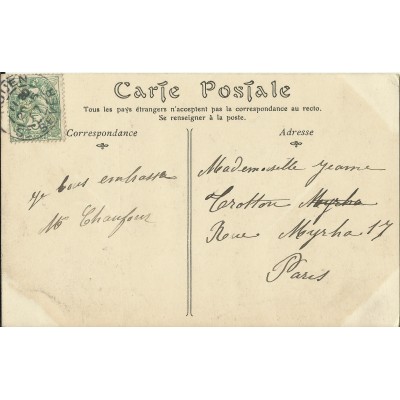 Carte Postale
Tous les pays étrangers n'acceptent pas la correspondance au recto.
Se renseigner à la poste.
Correspondance
Je vous embrasse
M Chaufour
Adresse
Mademoiselle Jeanne
Trotton Myrha
Rue Myrha 17
Paris